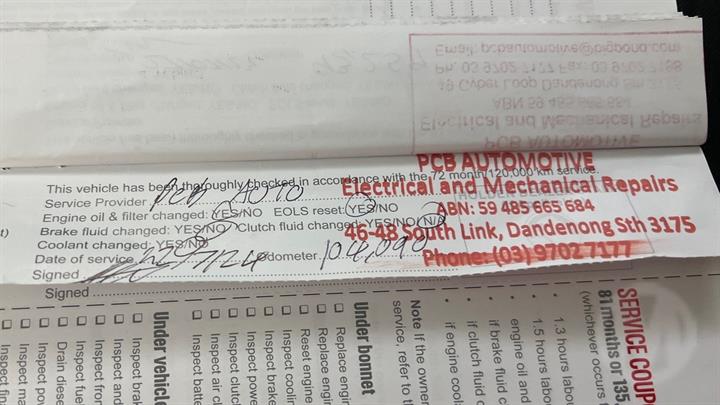 Email: pcbautomotive@bigpond.com
Ph. 03 9702 7177 Fax: 03 9702 7188
49 Cyber Loop Dandenong
ABN 59 485 665 684
Electrical and Mechanical Repairs
PCB AUTOMOTIVE
This vehicle has been thoroughly checked in accordance with the 72 month/120,000 km service.
Service Provider PCB AUTO
Engine oil & filter changed: YES/NO EOLS reset: YES/NO
Brake fluid changed: YES/NO Clutch fluid changed: YES/NO/N/A
Coolant changed: YES/NO
Date of service Odometer. 104,090
Signed
Signed
PCB AUTOMOTIVE
Electrical and Mechanical Repairs
ABN: 59 485 665 684
46-48 South Link, Dandenong Sth 3175
Phone: (03) 9702 7177
SERVICE COUP
81 months or 135
(whichever occurs
1.3 hours labo
1.5 hours labo
engine oil and
if brake fluid c
if clutch fluid c
if engine cool
Note If the owner
service, refer to t
Under bonnet
Replace engine
Replace engine
Reset engine
Inspect coolin
Inspect brake
Inspect powe
Inspect clutc
Inspect air c
Inspect batte
Under vehicle
Inspect brak
Inspect and
Inspect fron
Inspect fuel
Drain diese
Inspect pow
Inspect ma
Inspect fin